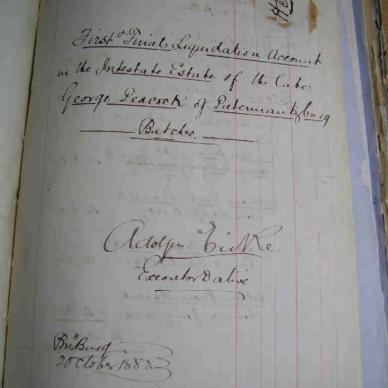 First & Final Liquidation Account
in the Intestate Estate of the late
George Peacock of Pietermaritzburg
Butcher.
Adolph
Executor Dative
PmBurg
October 1883